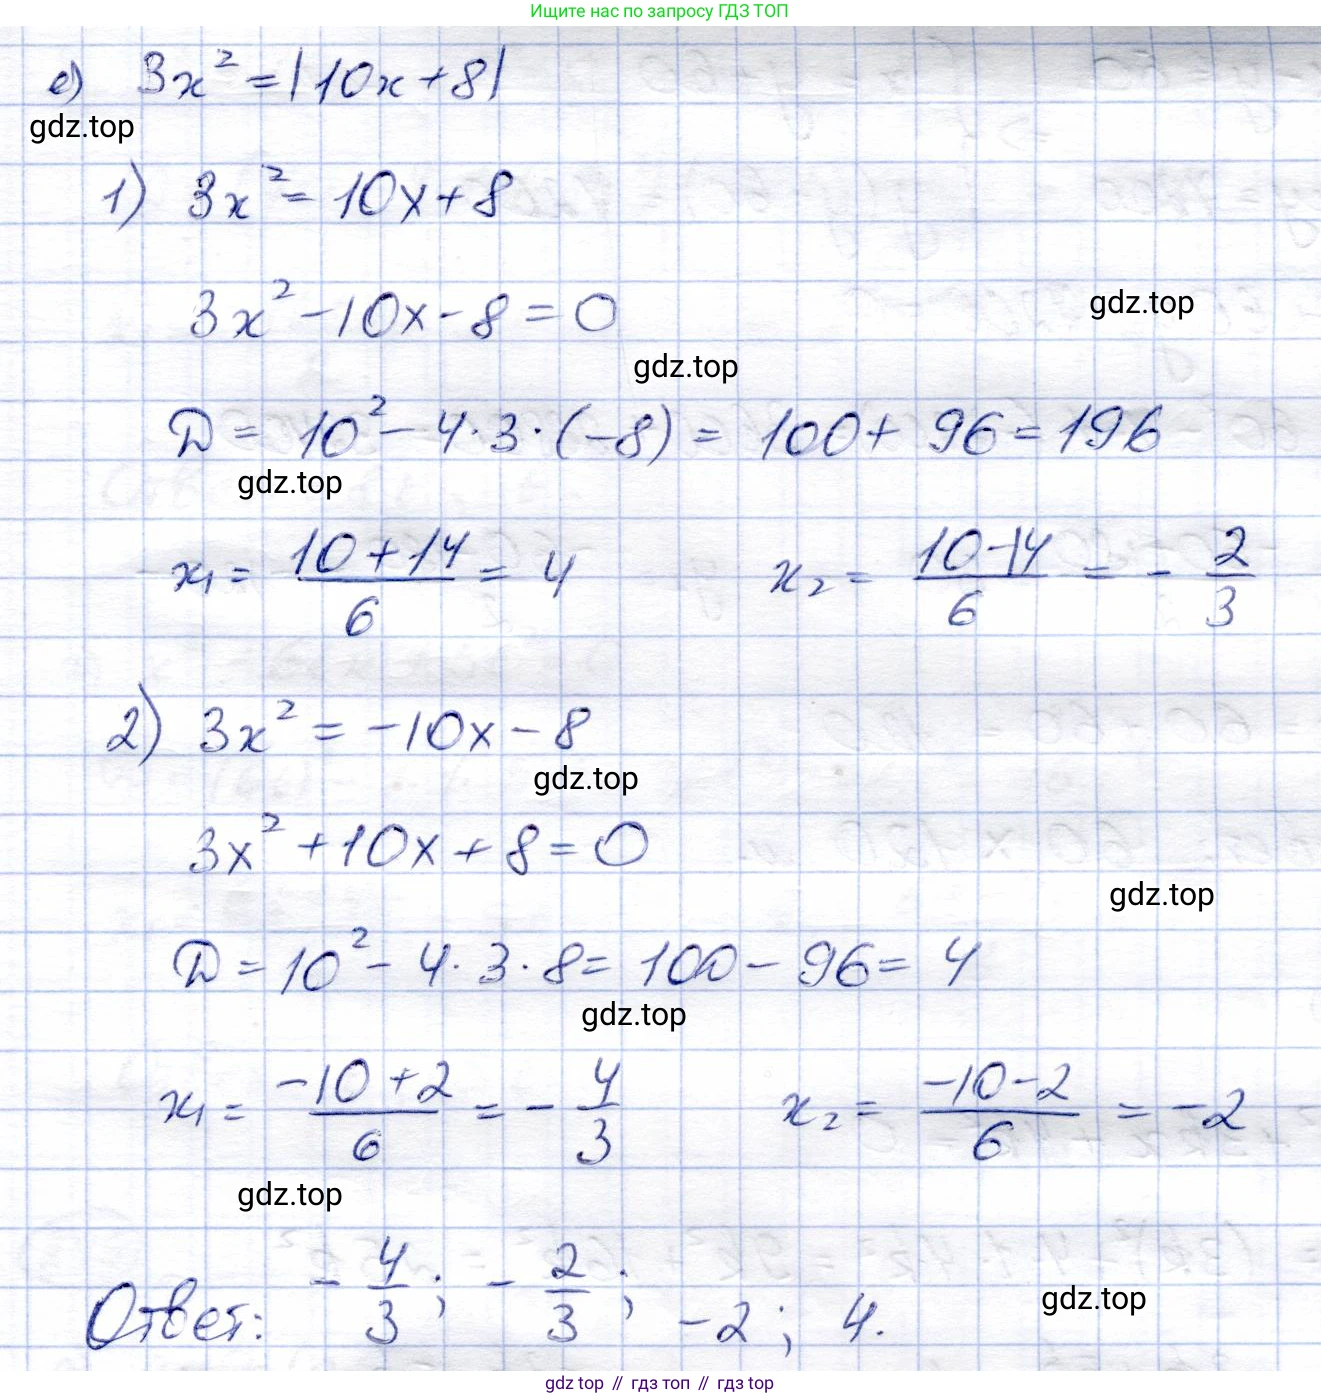 Ищите нас по запросу ГДЗ ТОП
е) 3x² = |10x + 8|
gdz.top
1) 3x² = 10x + 8
3x² - 10x - 8 = 0
gdz.top
gdz.top
D = 10² - 4·3·(-8) = 100 + 96 = 196
gdz.top
x₁ = (10 + 14)/6 = 4 x₂ = (10 - 14)/6 = -2/3
2) 3x² = -10x - 8
gdz.top
3x² + 10x + 8 = 0
gdz.top
D = 10² - 4·3·8 = 100 - 96 = 4
gdz.top
x₁ = (-10 + 2)/6 = -4/3 x₂ = (-10 - 2)/6 = -2
gdz.top
Ответ: -4/3; -2/3; -2; 4.
gdz.top
gdz top // гдз топ // gdz top